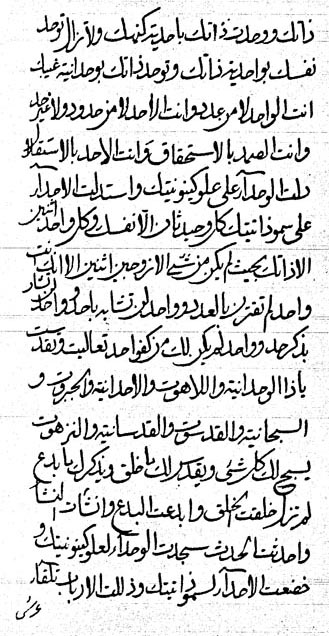 ذاتك ووحدت ذاتك باحدية كنهك ولاتزال توحد
نفسك بواحدية ذاتك وتوحد ذاتك بوحدانية غيبك
انت الواحد لا من عدد وانت الاحد لا من حدود ولا غير حد
وانت الصمد بالاستحقاق وانت الاحد بالاستقلال
دلت الوحدآء على علو كينونيتك واستدلت الاحدآء
على سمو ذاتيتك كل وحيد ثان الا نفسك وكل واحد اثنين
الا ذاتك بحيث لم يكن من شئ الا زوجين اثنين الا انك انت
واحد لم تقترن بالعدد وواحد لن تشابه باحد و
بذكر حد وواحد لم يكن لك من كفوا حد تعاليت وتقدست
يا ذا الوحدانية واللاهوت والاحدانية والجبروت و
السبحانية والقدسوت والقدسانية والنزهوت
يسبح لك كل شئ ويقدس لك ما خلق ويذكرك ما بدع
لم تزل خلقت الخلق وابدعت البدع وانشات النشأ
واحدثت الحدث سجدت الوحدآء لعلو كينونيتك و
خضعت الاحدآء لسمو ذاتيتك وذلت الارباب